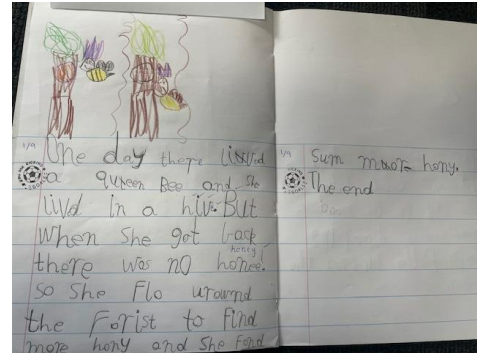 1/9 One day there lisved
a queen Bee and she
livd in a hiv. But
when she got back
honey!
there was no honee!
so she flo urawnd
the Forist to find
more hony and she fond
1/9 sum muore hony.
The end